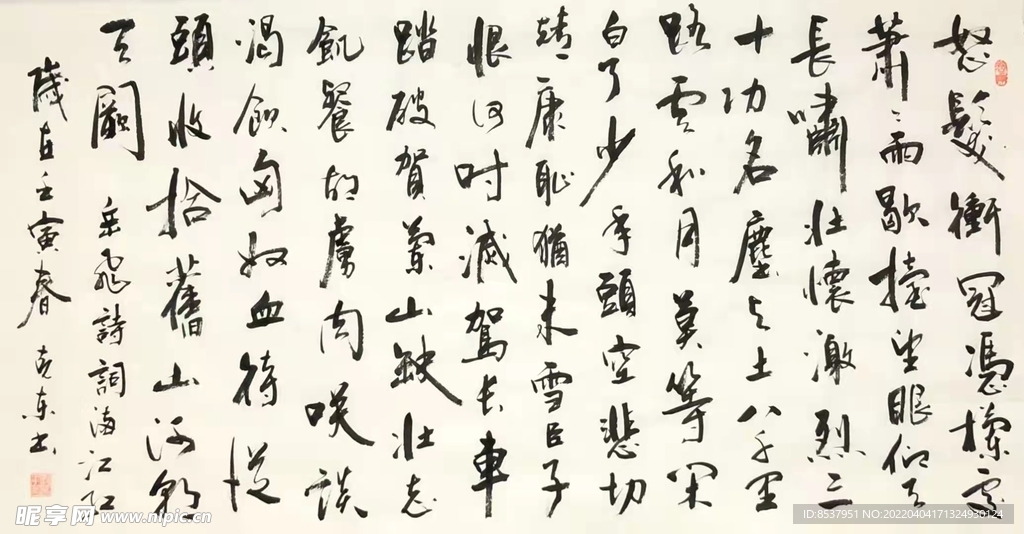 怒髮衝冠憑欄處
蕭〻雨歇擡望眼仰天
長嘯壯懷激烈三
十功名塵与土八千里
路云和月莫等閑
白了少年頭空悲切
靖康恥猶未雪臣子
恨何时滅駕长車
踏破賀蘭山缺壯志
飢餐胡虜肉咲談
渴飲匈奴血待從
頭收拾舊山河朝
天闕
岳飛詩詞滿江红
歲在壬寅春 克东书
昵享网 www.nipic.cn
ID:8537951 NO:20220404171324930124